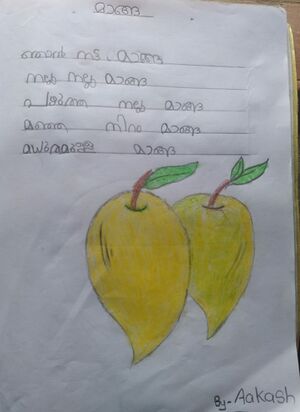 മാങ്ങ
ഞാൻ നട്ട മാങ്ങ
നല്ല നല്ല മാങ്ങ
പഴുത്ത നല്ല മാങ്ങ
മഞ്ഞ നിറ മാങ്ങ
മധുരമുള്ള മാങ്ങ
By - Aakash